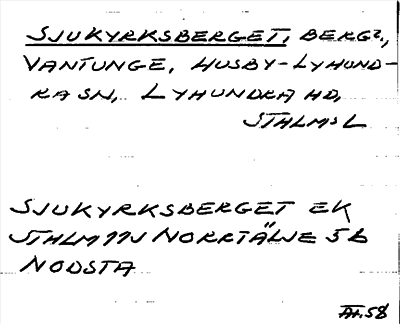 SJUKYRKSBERGET, BERG?,
VANTUNGE, HUSBY-LYHUND-
RA SN, LYHUNDRA HD,
STHLMS L
SJUKYRKSBERGET EK
STHLM 11J NORRTÄLJE 5b
NODSTA